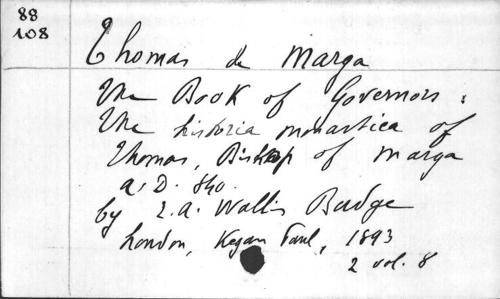 88
108
Thomas de Marga
The Book of Governors :
The historia monastica of
Thomas, Bishop of Marga
A. D. 840.
by E. A. Wallis Budge
London, Kegan Paul, 1893
2 vol. 8